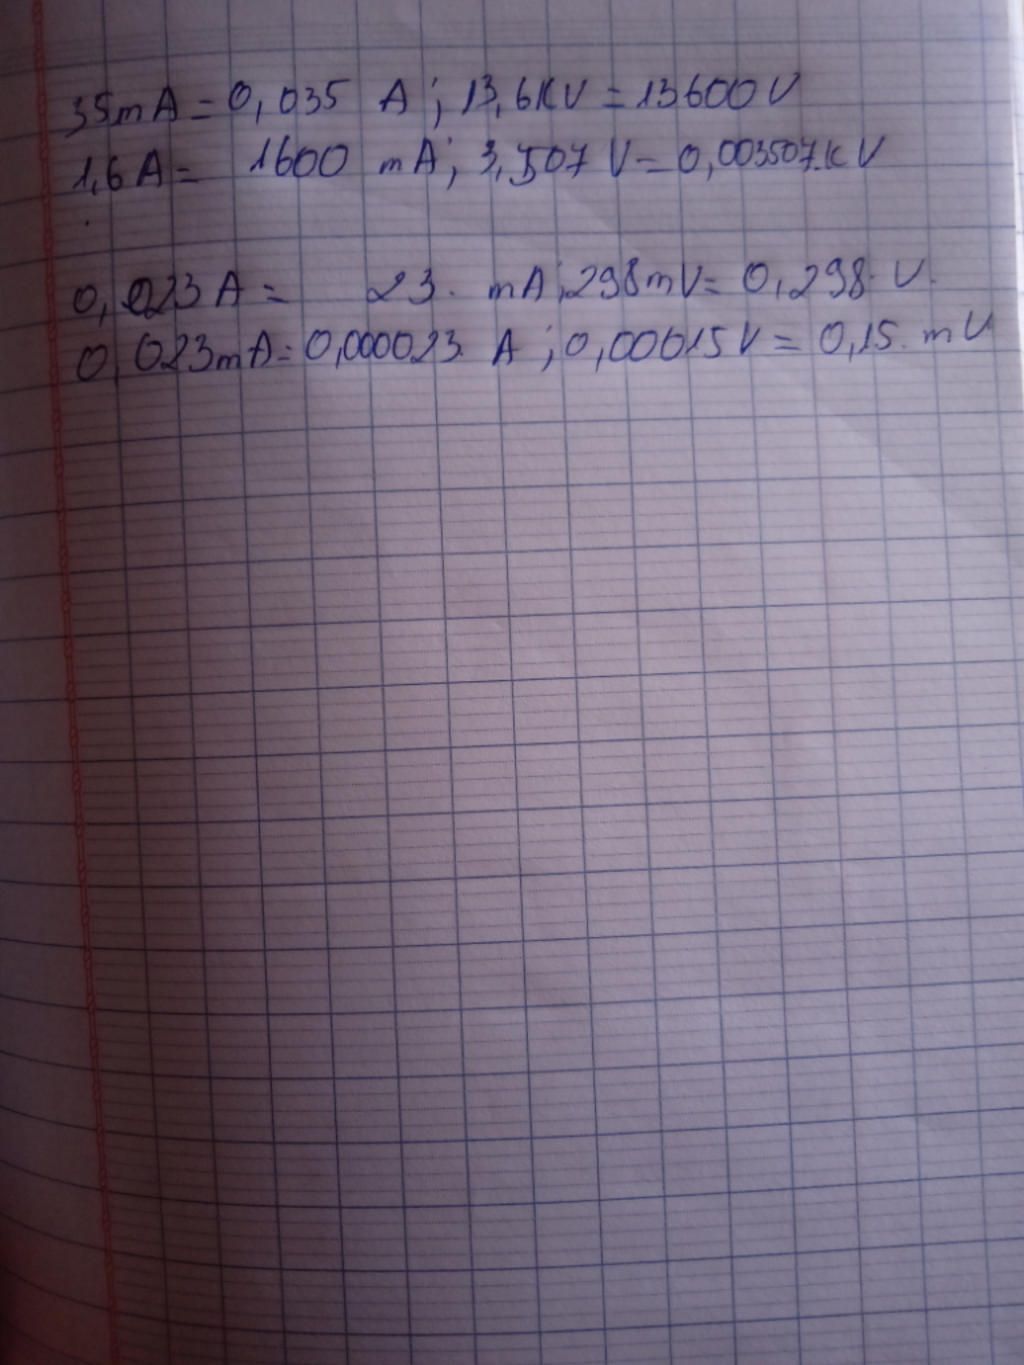 35mA = 0,035 A ; 13,6KV = 13600V
1,6A = 1600 mA ; 3,507 V = 0,003507.KV
0,023A = 23. mA ; 298mV = 0,298 V.
0,023mA = 0,000023. A ; 0,00015V = 0,15. mV